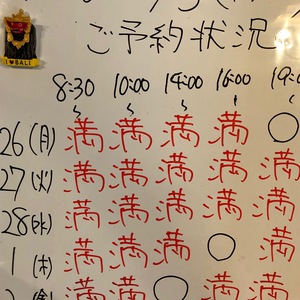 ご予約状況
I ♥ BALI
8:30 10:00 14:00 16:00 19:0
26(月) 満 満 満 満 ○
27(火) 満 満 満 満 満
28(水) 満 満 満 満 満
1(木) 満 満 満 ○ 満
満 満 ○ 満 満